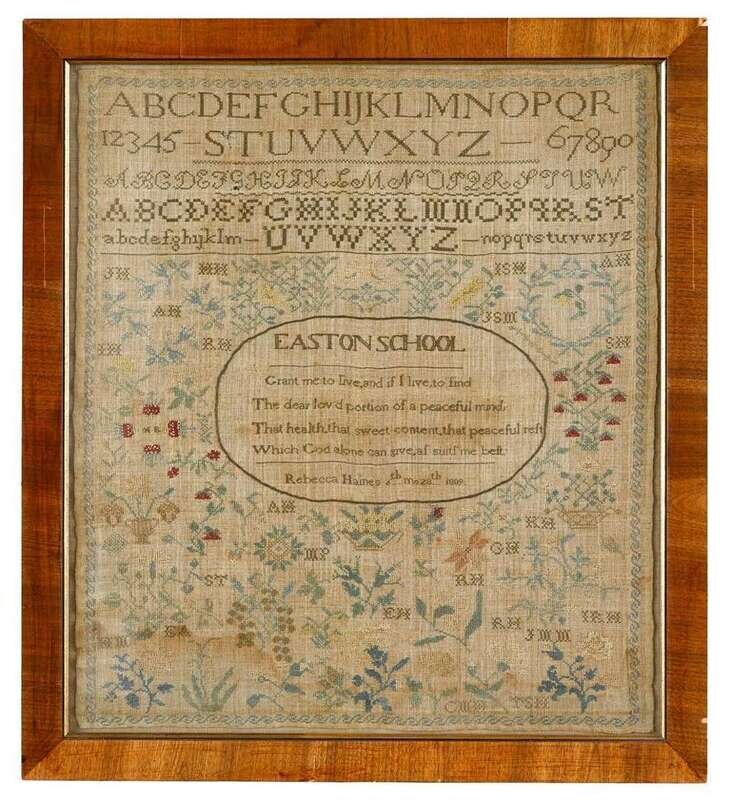 ABCDEFGHIJKLMNOPQR
12345-STUVWXYZ-67890
ABCDEFGHIJKLMNOPQRSTUW
ABCDEFGHIJKLMNOPQRST
abcdefghijklm-UVWXYZ-nopqrstuvwxyz
JH HH ISH AH
AH JSM
IH RH SH
EASTON SCHOOL
Grant me to live, and if I live, to find
The dear lov'd portion of a peaceful mind;
That health, that sweet content, that peaceful rest
Which God alone can give, as suits me best.
Rebecca Haines 6th mo 28th 1809.
AH RH
MP GH
ST RH
EH RH IEH
EA JMM
TSH